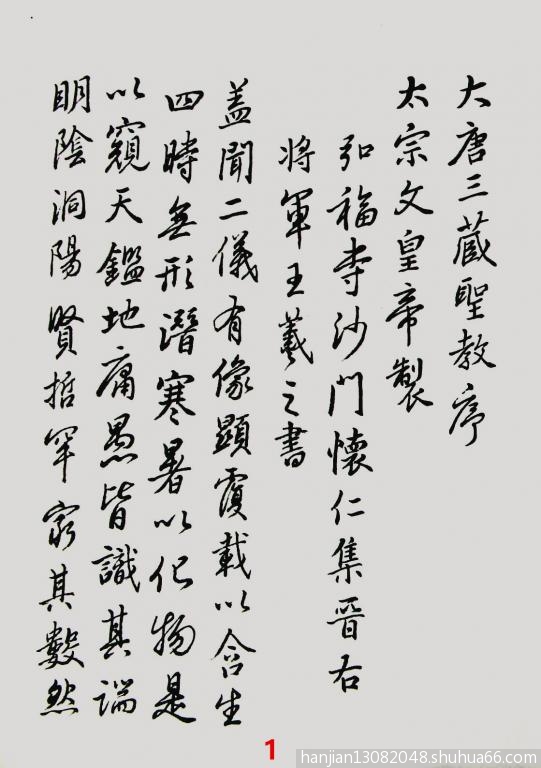 大唐三藏聖教序
太宗文皇帝製
弘福寺沙門懷仁集晉右
將軍王羲之書
盖聞二儀有像顯覆載以含生
四時無形潛寒暑以化物是
以窺天鑑地庸愚皆識其端
明陰洞陽賢哲罕窮其數然
1
hanjian13082048.shuhua66.com